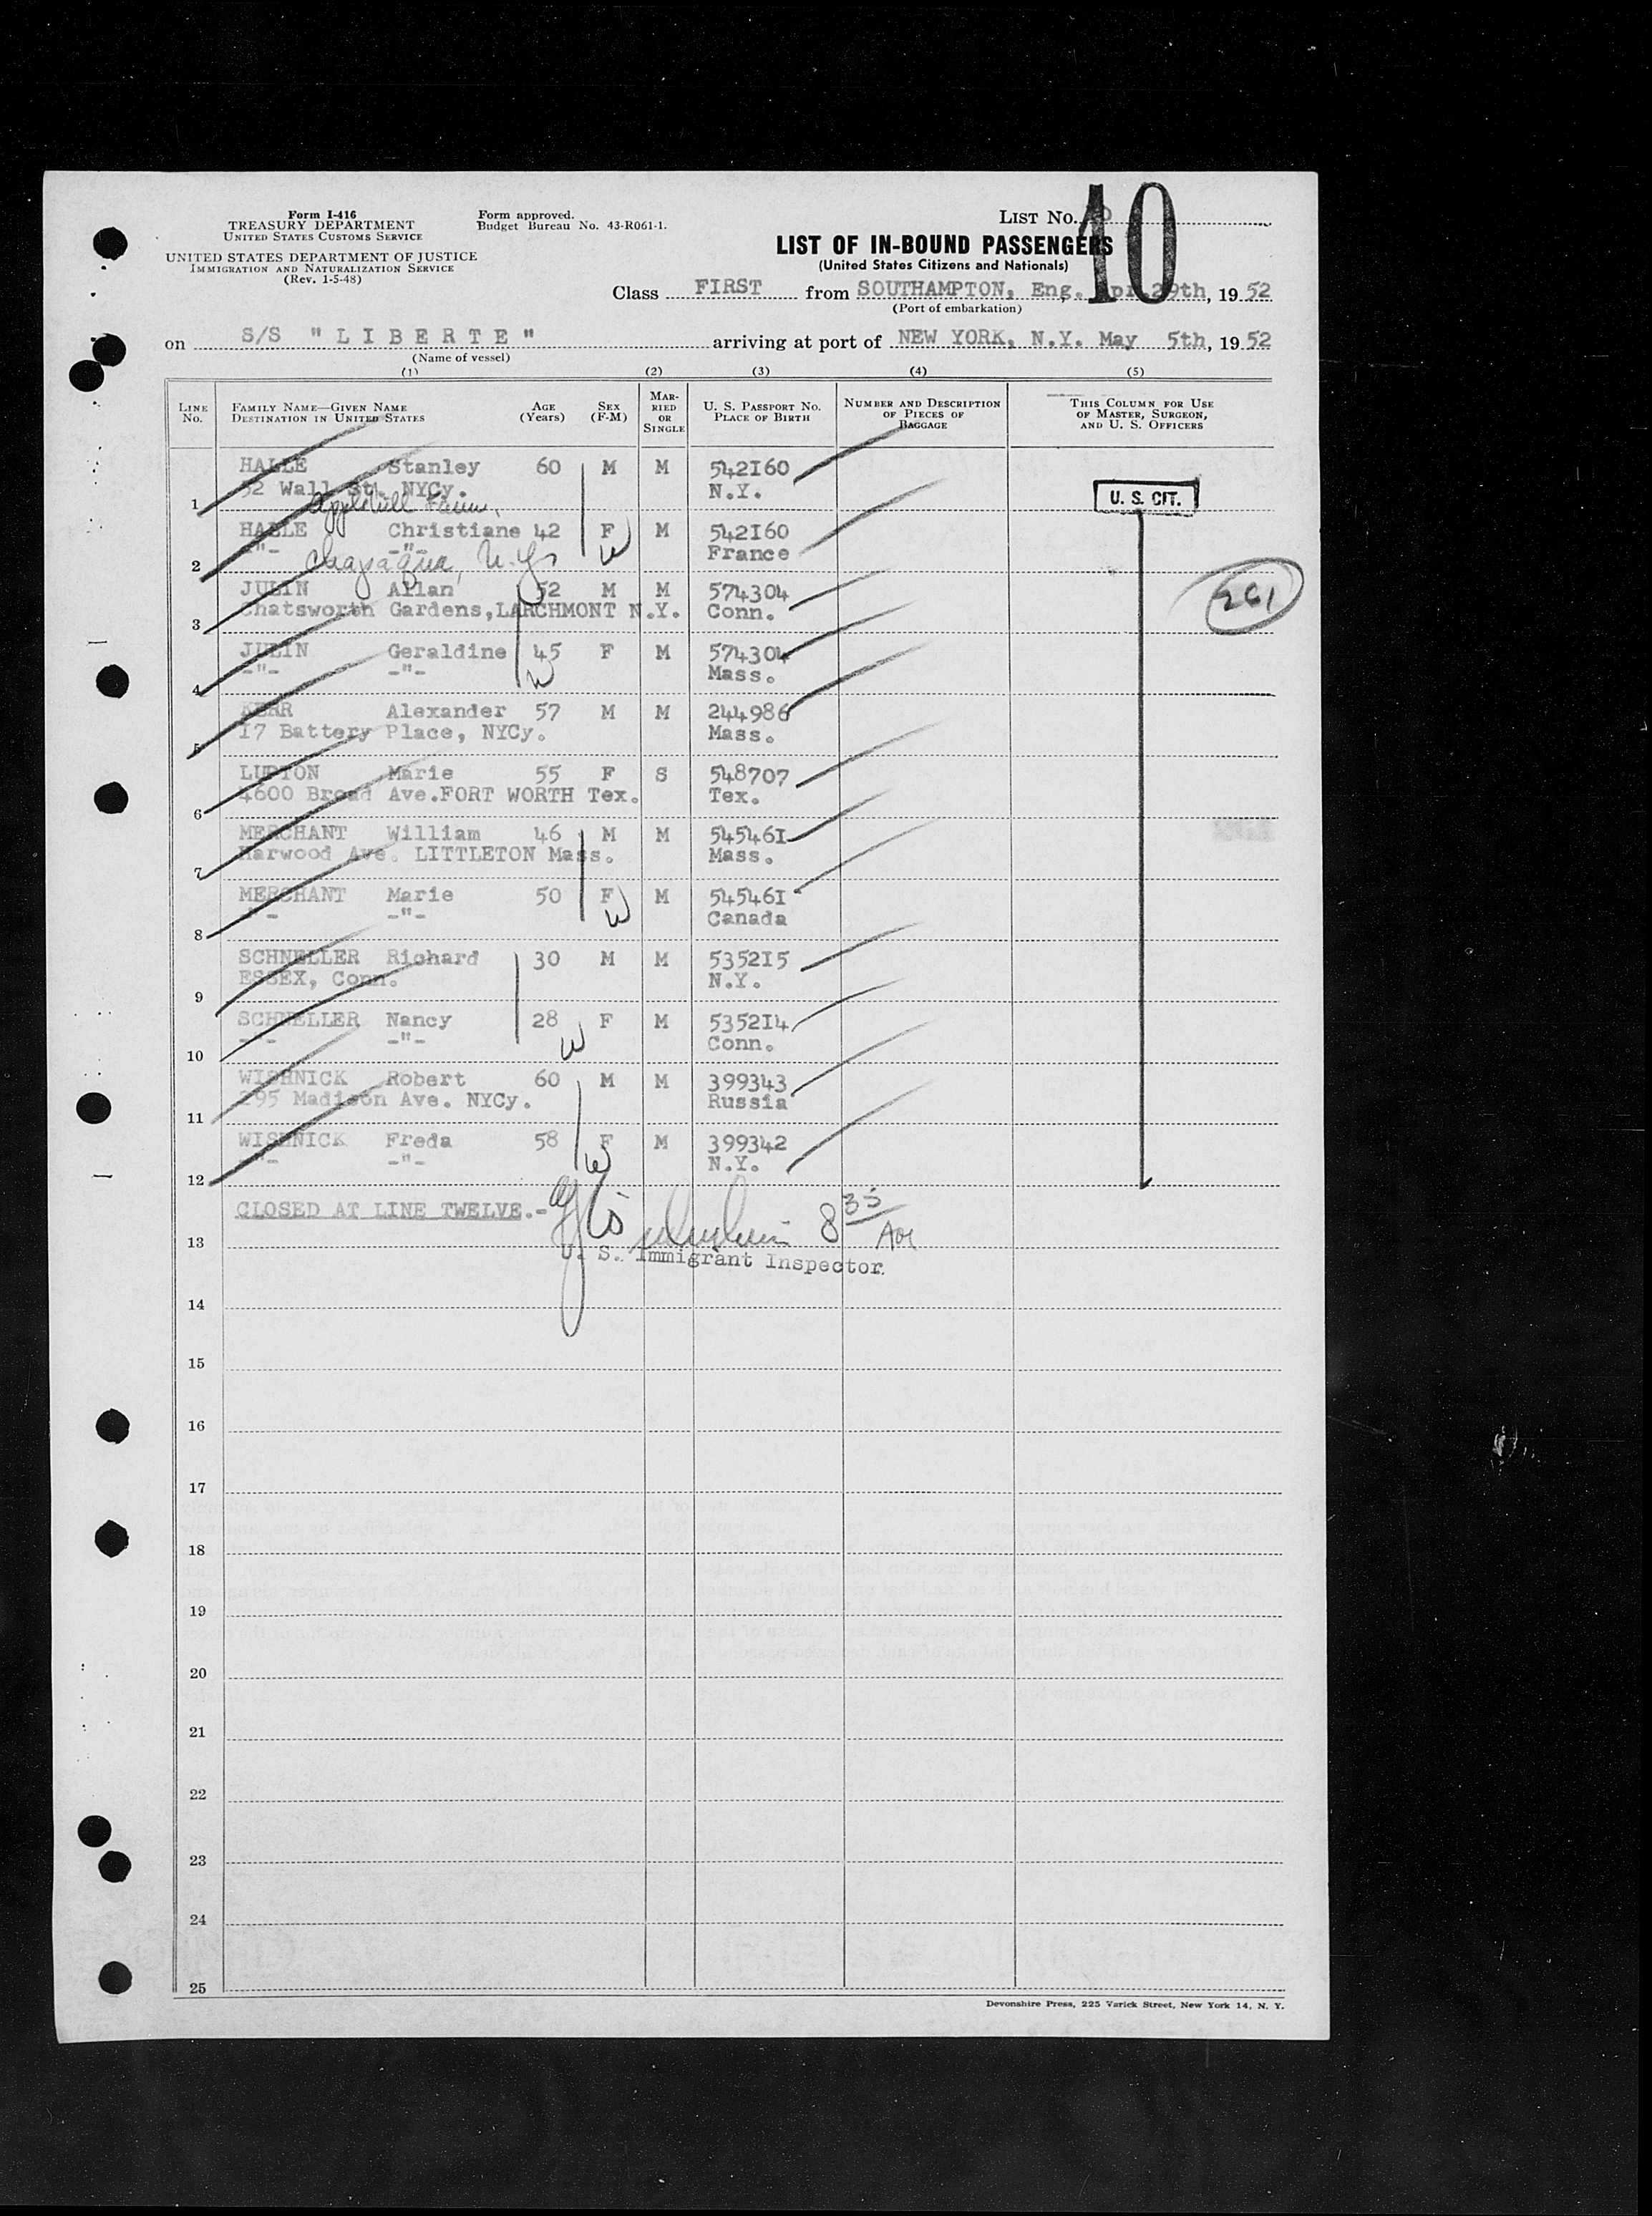 Form I-416
TREASURY DEPARTMENT
UNITED STATES CUSTOMS SERVICE
UNITED STATES DEPARTMENT OF JUSTICE
IMMIGRATION AND NATURALIZATION SERVICE
(Rev. 1-5-48)
Form approved.
Budget Bureau No. 43-R061-1.
LIST NO. 10
LIST OF IN-BOUND PASSENGERS
(United States Citizens and Nationals)
Class FIRST from SOUTHAMPTON, Eng. Apr. 29th, 1952
(Port of embarkation)
on S/S "LIBERTE" arriving at port of NEW YORK, N.Y. May 5th, 1952
(Name of vessel)
(1) (2) (3) (4) (5)
LINE NO. FAMILY NAME—GIVEN NAME DESTINATION IN UNITED STATES AGE (Years) SEX (F-M) MARRIED OR SINGLE U. S. PASSPORT NO. PLACE OF BIRTH NUMBER AND DESCRIPTION OF PIECES OF BAGGAGE THIS COLUMN FOR USE OF MASTER, SURGEON, AND U. S. OFFICERS
HALLE Stanley 60 M M 542I60
1 52 Wall St. NYCy. N.Y. U. S. CIT.
Applehill Farm,
HALLE Christiane 42 F M 542I60
2 -"- -"- France
Chapaqua, N.Y.
JULIN Allan 52 M M 574304
3 Chatsworth Gardens, LARCHMONT N.Y. Conn. 261
JULIN Geraldine 45 F M 574304
4 -"- -"- Mass.
KERR Alexander 57 M M 244986
5 I7 Battery Place, NYCy. Mass.
LUPTON Marie 55 F S 548707
6 4600 Broad Ave. FORT WORTH Tex. Tex.
MERCHANT William 46 M M 54546I
7 Harwood Ave. LITTLETON Mass. Mass.
MERCHANT Marie 50 F M 54546I
8 -"- -"- Canada
SCHNELLER Richard 30 M M 5352I5
9 ESSEX, Conn. N.Y.
SCHNELLER Nancy 28 F M 5352I4
10 -"- -"- Conn.
WISHNICK Robert 60 M M 399343
11 295 Madison Ave. NYCy. Russia
WISHNICK Freda 58 F M 399342
12 -"- -"- N.Y.
CLOSED AT LINE TWELVE.-
8 35
13
U. S. Immigrant Inspector.
14
15
16
17
18
19
20
21
22
23
24
25
Devonshire Press, 225 Varick Street, New York 14, N. Y.